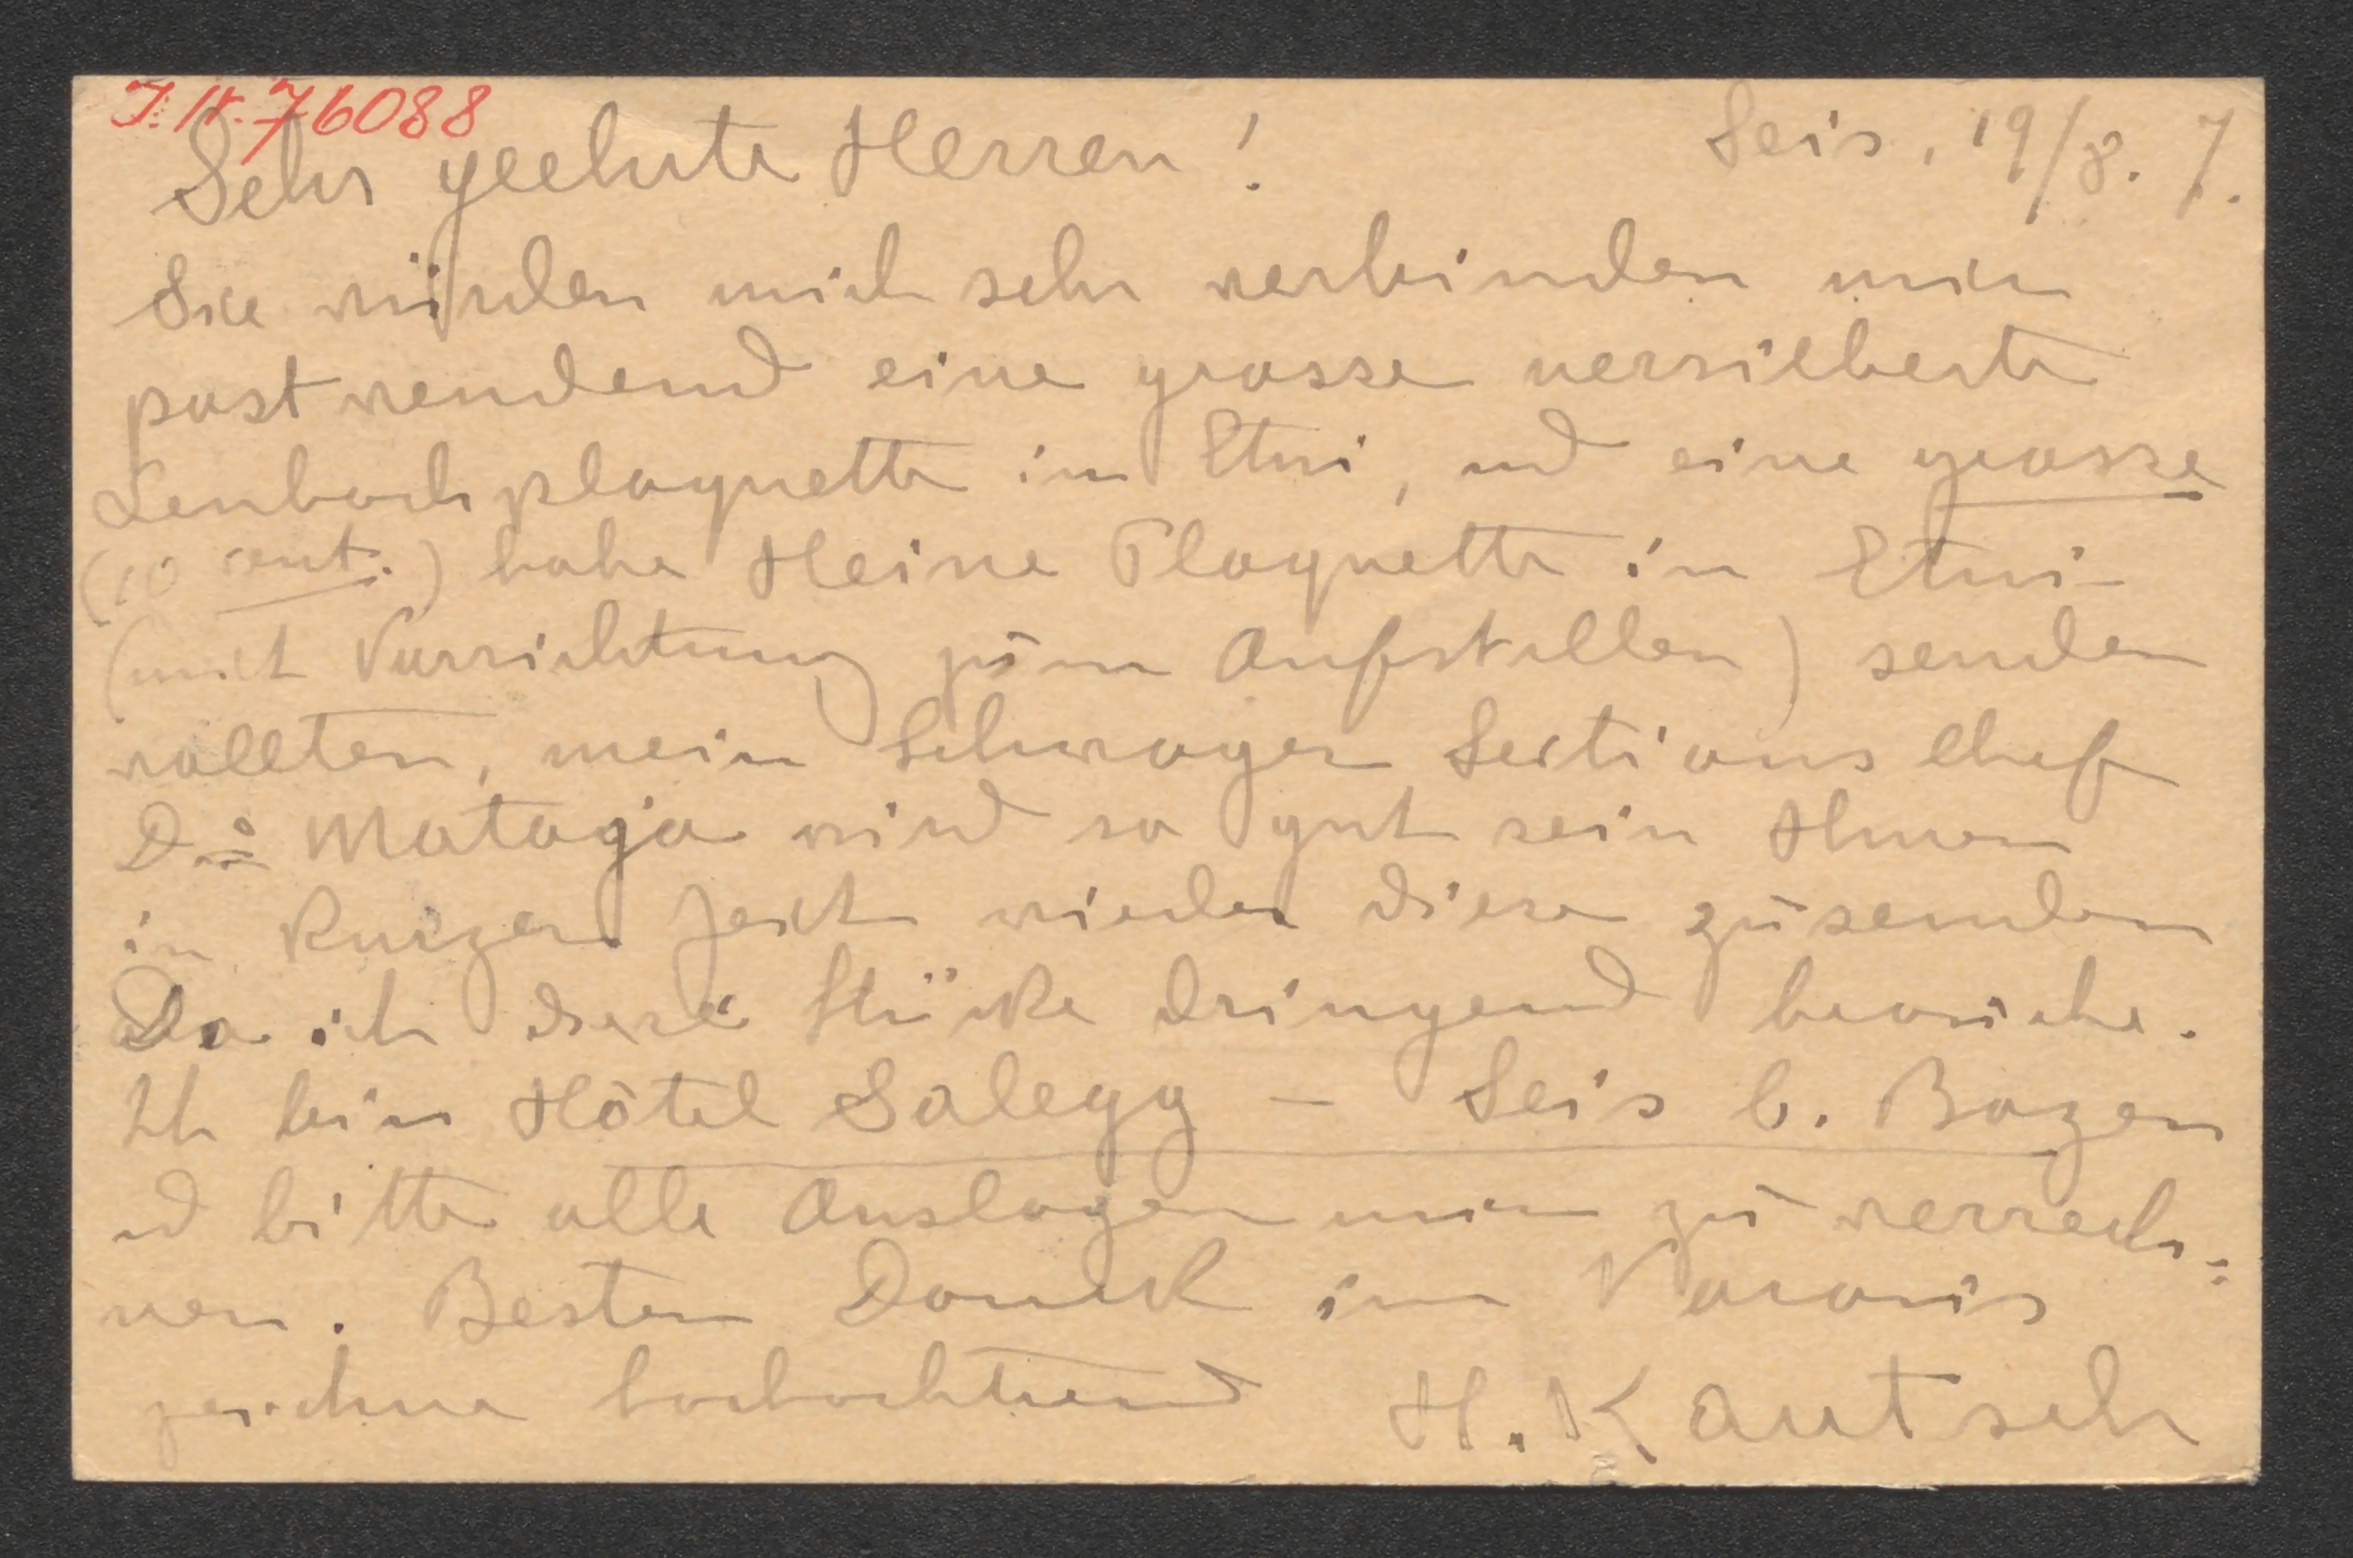 J.N. 76088
Sehr geehrte Herren! Seis, 19/8. 7.
Sie würden mich sehr verbinden mir
postwendend eine grosse versilberte
Lenbachplaquette im Etui, und eine grosse
(10 cent.) hohe Heine Plaquette in Etui
(mit Vorrichtung zum Aufstellen) senden
wollten, mein Schwager Sectionschef
Dr. Mataja wird so gut sein Ihnen
in kurzer Zeit wieder diese zusenden
Da ich diese Stücke dringend brauche.
Ich bin Hôtel Salegg – Seis b. Bozen
und bitte alle Auslagen mir zu verrech=
nen. Besten Danck im Voraus
zeichne hochachtend H. Kautsch